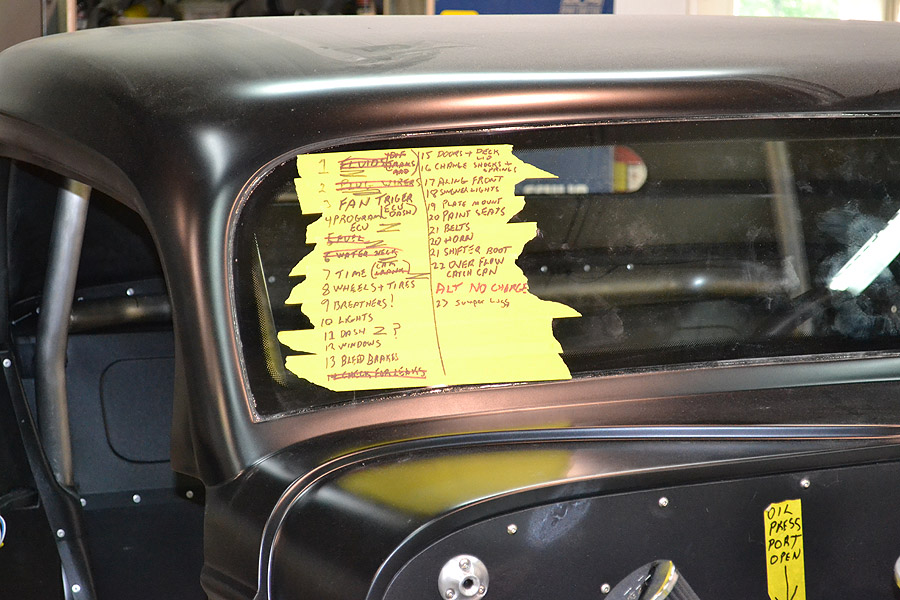 1 FLUIDS
2 PLUG WIRES
3 FAN TRIGER
4 PROGRAM (ECU DASH)
ECU
5 FUEL
6 WATER NECK
7 TIME (CAM CRANK)
8 WHEELS + TIRES
9 BREATHERS!
10 LIGHTS
11 DASH Z ?
12 WINDOWS
13 BLEED BRAKES
14 CHECK FOR LEAKS
15 DOORS + DECK
LID
16 CHANGE SHOCKS +
SPRINGS
17 ALING FRONT
18 SIGNAL LIGHTS
19 PLATE MOUNT
20 PAINT SEATS
21 BELTS
20 HORN
21 SHIFTER BOOT
22 OVER FLOW
CATCH CAN
ALT NO CHARGE
23
OIL
PRESS
PORT
OPEN